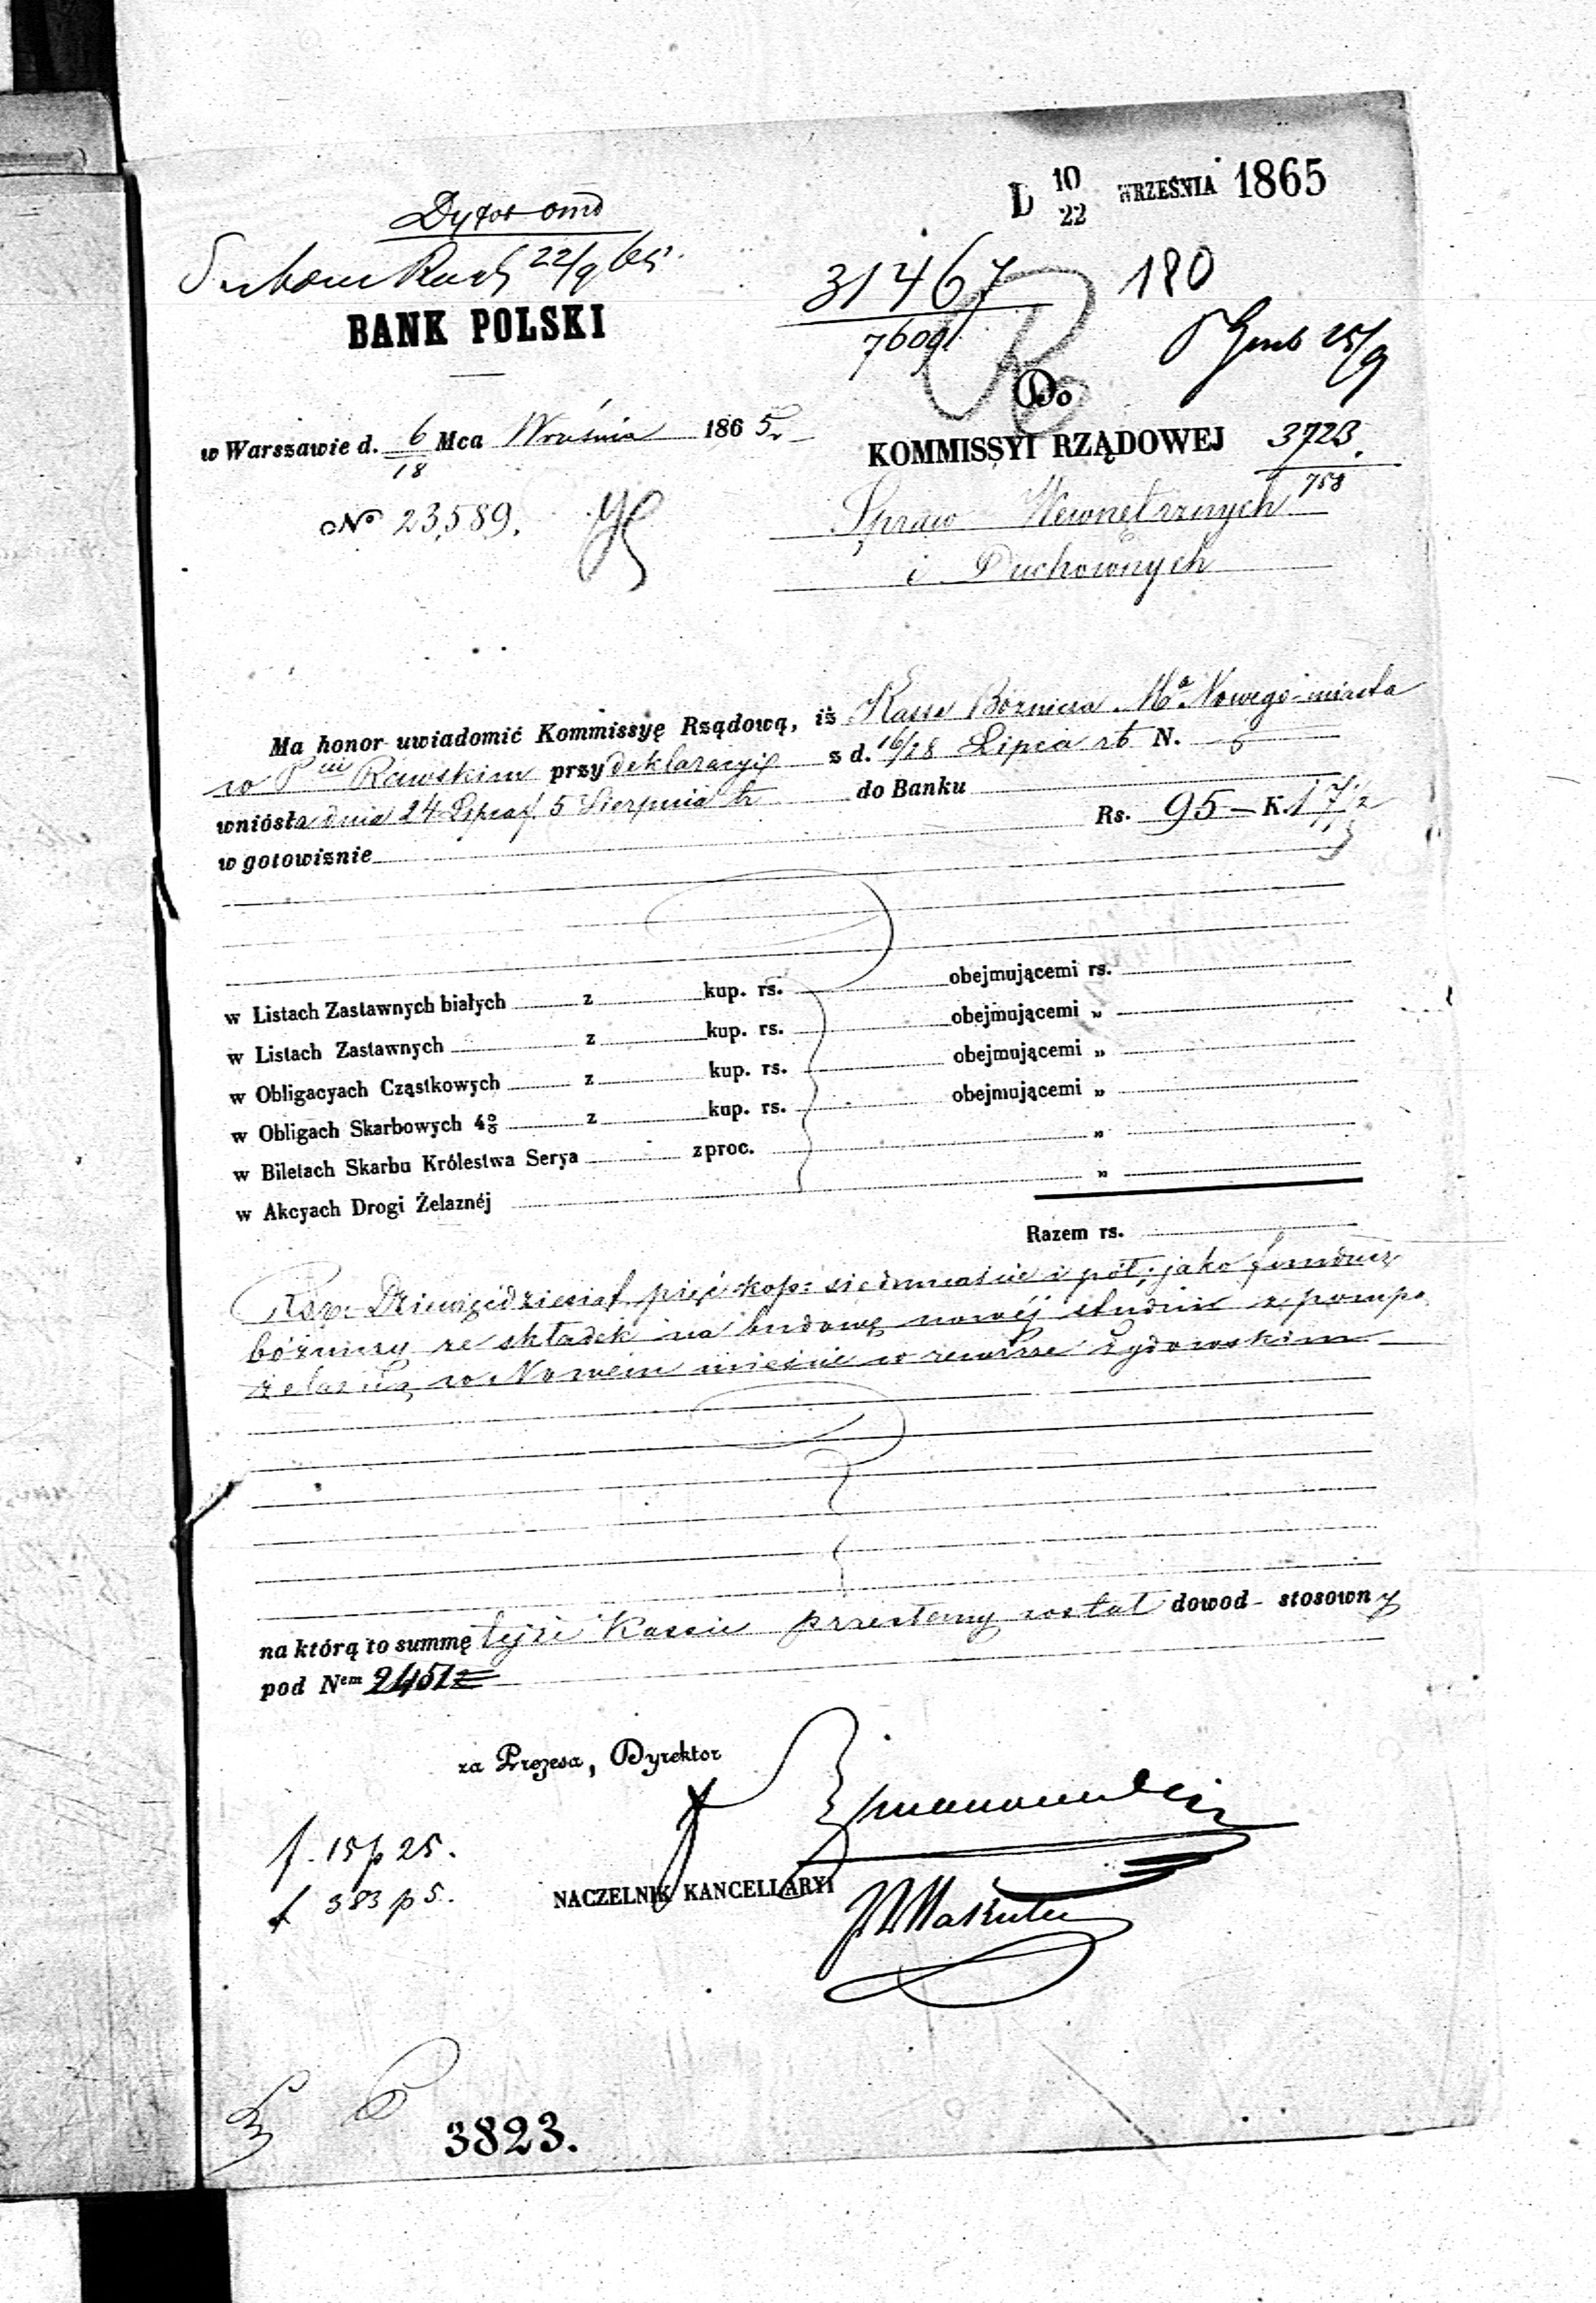 D 10/22 WRZEŚNIA 1865
22/9 65.
31467
7609
180
25/9
BANK POLSKI
Do
w Warszawie d. 6/18 Mca Września 1865 r.
KOMMISSYI RZĄDOWEJ
3723.
758
No 23,589.
Spraw Wewnętrznych
i Duchownych
Ma honor uwiadomić Kommissyę Rządową, iż Kassa Bożnicza Ma. Nowego-miasta
w Pcie Rawskim przy deklaracyi z d. 16/28 Lipca rb N.
wniósła dnia 24 Lipca/5 Sierpnia tr do Banku
w gotowiznie Rs. 95 – K. 17 1/2
w Listach Zastawnych białych z kup. rs. obejmującemi rs.
w Listach Zastawnych z kup. rs. obejmującemi „
w Obligacyach Cząstkowych z kup. rs. obejmującemi „
w Obligach Skarbowych 4% z kup. rs. obejmującemi „
w Biletach Skarbu Królestwa Serya z proc. „
w Akcyach Drogi Żelaznéj „
Razem rs.
Rsr. Dziewięćdziesiąt pięć kop: siedmnaście i pół; jako fundusz
bóżniczy ze składek na budowę nowéj studni z pompą
żelazną w Nowem mieście w rewirze Żydowskim
na którą to summę tejże Kassie przesłany został dowod stosowny
pod Nem 2451
za Prezesa, Dyrektor
f. 15 p 25.
f 383 p 5.
NACZELNIK KANCELLARYI
3823.